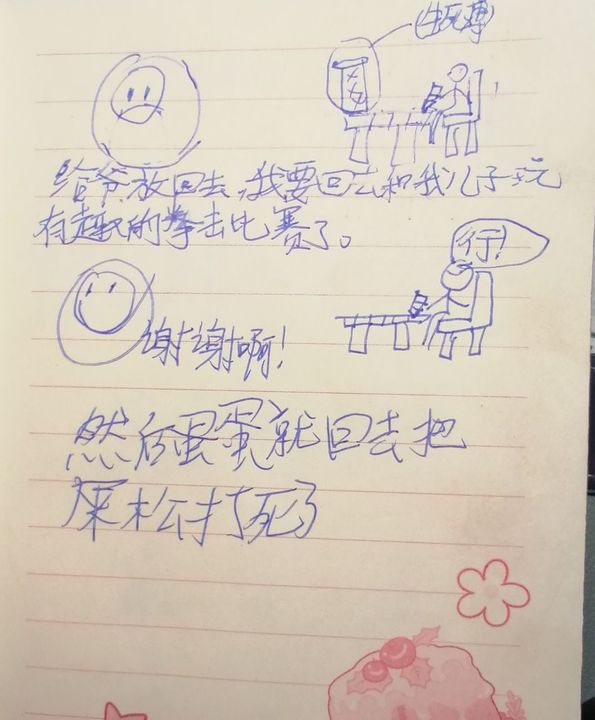 (生死薄)
给爷放回去,我要回去和我儿子玩
有趣的拳击比赛了。
行!
谢谢啊!
然后蛋蛋就回去把
屎松打死了